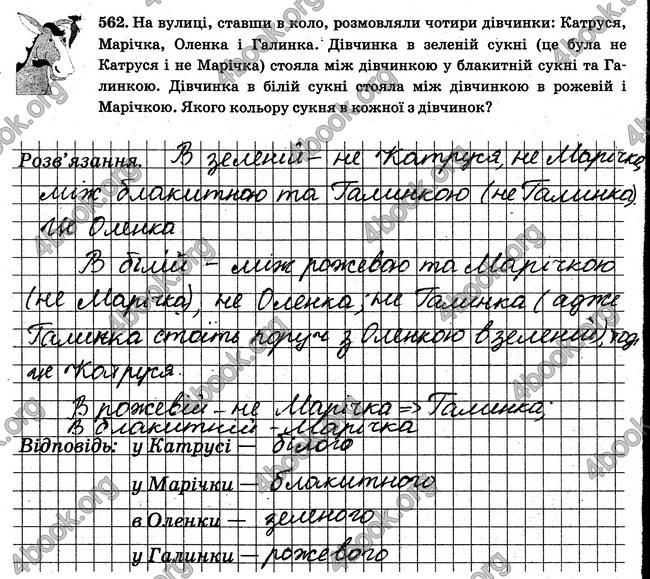 562. На вулиці, ставши в коло, розмовляли чотири дівчинки: Катруся,
Марічка, Оленка і Галинка. Дівчинка в зеленій сукні (це була не
Катруся і не Марічка) стояла між дівчинкою у блакитній сукні та Га-
линкою. Дівчинка в білій сукні стояла між дівчинкою в рожевій і
Марічкою. Якого кольору сукня в кожної з дівчинок?
Розв'язання. В зеленій – не Катруся, не Марічка,
між блакитною та Галинкою (не Галинка),
це Оленка
В білій – між рожевою та Марічкою
(не Марічка), не Оленка, не Галинка (адже
Галинка стоїть поруч з Оленкою в зеленій), тоді
це Катруся.
В рожевій – не Марічка => Галинка;
В блакитній – Марічка
Відповідь: у Катрусі — білого
у Марічки — блакитного
в Оленки — зеленого
у Галинки — рожевого
4book.org